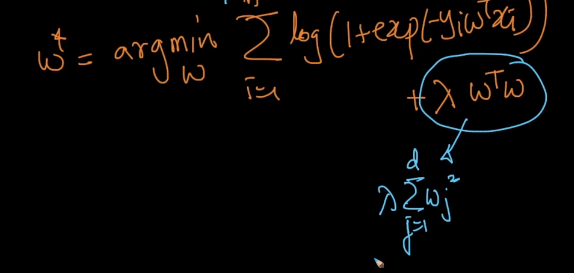 w* = argmin_w Σ_{i=1} log(1+exp(-y_i w^T x_i))
+ λ w^T w
λ Σ_{j=1}^{d} w_j^2